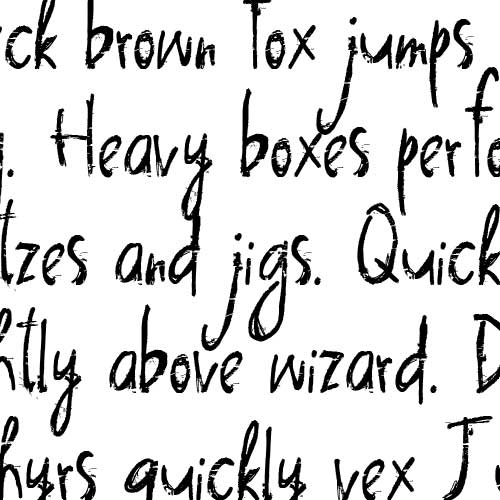 ck brown fox jumps
. Heavy boxes perfo
tzes and jigs. Quick
htly above wizard. D
hyrs quickly vex J